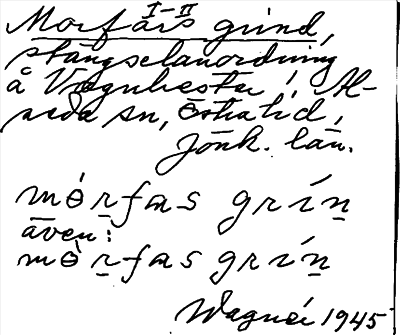 I-II
Morfars grind,
stängselanordning
å Vagnhester, Al-
seda sn, Östra hd,
Jönk. län.
mórfas grín
även:
mòrfas grín
Wagnér 1945